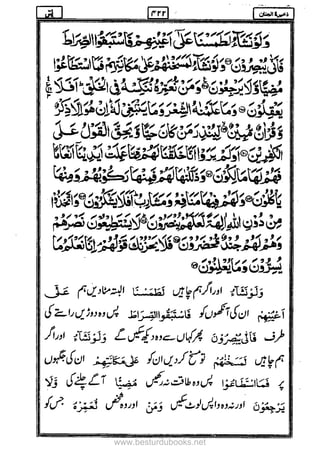 یٰسٓ ۴۲۲ ذخیرۃ الجنان
وَلَوْ نَشَآءُ لَطَمَسْنَا عَلٰٓی اَعْیُنِهِمْ فَاسْتَبَقُوا الصِّرَاطَ
فَاَنّٰی یُبْصِرُوْنَ وَلَوْ نَشَآءُ لَمَسَخْنٰهُمْ عَلٰی مَكَانَتِهِمْ فَمَا اسْتَطَاعُوْا
مُضِیًّا وَّلَا یَرْجِعُوْنَ وَمَنْ نُّعَمِّرْهُ نُنَكِّسْهُ فِی الْخَلْقِ اَفَلَا
یَعْقِلُوْنَ وَمَا عَلَّمْنٰهُ الشِّعْرَ وَمَا یَنْۢبَغِیْ لَهٗ اِنْ هُوَ اِلَّا ذِكْرٌ
وَّقُرْاٰنٌ مُّبِیْنٌ لِّیُنْذِرَ مَنْ كَانَ حَیًّا وَّیَحِقَّ الْقَوْلُ عَلَی
الْكٰفِرِیْنَ اَوَلَمْ یَرَوْا اَنَّا خَلَقْنَا لَهُمْ مِّمَّا عَمِلَتْ اَیْدِیْنَآ اَنْعَامًا
فَهُمْ لَهَا مٰلِكُوْنَ وَذَلَّلْنٰهَا لَهُمْ فَمِنْهَا رَكُوْبُهُمْ وَمِنْهَا
یَاْكُلُوْنَ وَلَهُمْ فِیْهَا مَنَافِعُ وَمَشَارِبُ اَفَلَا یَشْكُرُوْنَ وَاتَّخَذُوْا
مِنْ دُوْنِ اللّٰهِ اٰلِهَةً لَّعَلَّهُمْ یُنْصَرُوْنَ لَا یَسْتَطِیْعُوْنَ نَصْرَهُمْ
وَهُمْ لَهُمْ جُنْدٌ مُّحْضَرُوْنَ فَلَا یَحْزُنْكَ قَوْلُهُمْ اِنَّا نَعْلَمُ مَا
یُسِرُّوْنَ وَمَا یُعْلِنُوْنَ
وَلَوْ نَشَآءُ اور اگر ہم چاہیں لَطَمَسْنَا البتہ مٹا دیں ہم عَلٰٓی
اَعْیُنِهِمْ ان کی آنکھوں کو فَاسْتَبَقُوا الصِّرَاطَ پس وہ دوڑیں راستے کی
طرف فَاَنّٰی یُبْصِرُوْنَ پھر کہاں سے وہ دیکھ سکیں گے وَلَوْ نَشَآءُ اور اگر
ہم چاہیں لَمَسَخْنٰهُمْ تو مسخ کر دیں ان کو عَلٰی مَكَانَتِهِمْ ان کی جگہوں
پر فَمَا اسْتَطَاعُوْا پس وہ طاقت نہ رکھیں مُضِیًّا آگے چلنے کی وَّلَا
یَرْجِعُوْنَ اور نہ وہ واپس لوٹ سکیں وَمَنْ اور وہ شخص نُّعَمِّرْهُ جس کو
www.besturdubooks.net